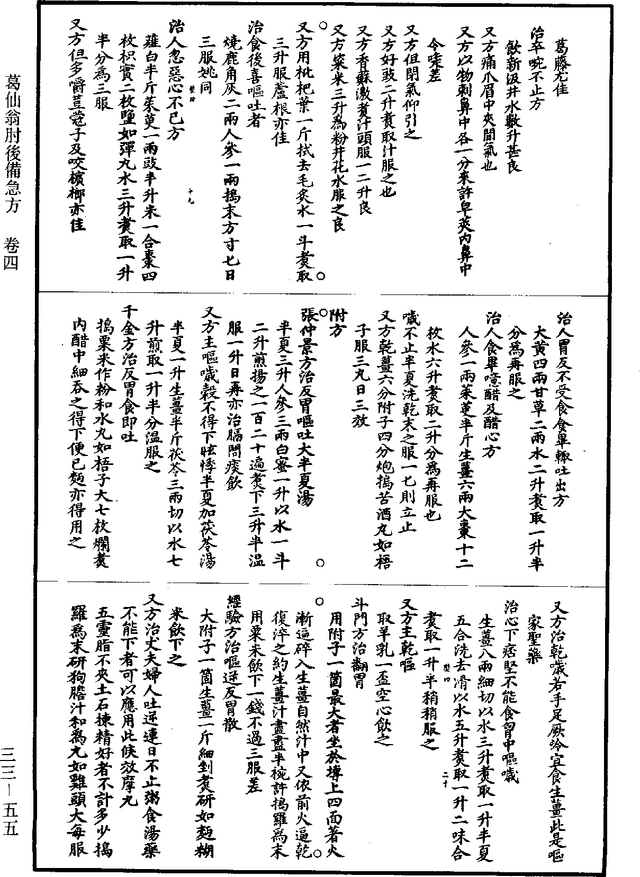 葛仙翁肘後備急方　卷四
三三－五五
葛藤尤佳
治卒啘不止方
飲新汲井水數升甚良
又方痛爪眉中夾間氣也
又方以物刺鼻中各一分來許皁莢內鼻中
令嚏差
又方但閉氣仰引之
又方好豉二升煮取汁服之也
又方香蘇濃煮汁頓服一二升良
又方粢米三升為粉井花水服之良
又方用枇杷葉一斤拭去毛炙水一斗煮取
三升服蘆根亦佳
治食後喜嘔吐者
燒鹿角灰二兩人參一兩搗末方寸匕日
三服姚同
治人忽惡心不已方
薤白半斤茱萸一兩豉半升米一合棗四
枚枳實二枚鹽如彈丸水三升煮取一升
半分為三服
又方但多嚼荳蔻子及咬檳榔亦佳
治人胃反不受食食畢輒吐出方
大黃四兩甘草二兩水二升煮取一升半
分為再服之
治人食畢噫醋及醋心方
人參一兩茱萸半斤生薑六兩大棗十二
枚水六升煮取二升分為再服也
噦不止半夏洗乾末之服一匕則立止
又方乾薑六分附子四分炮搗苦酒丸如梧
子服三丸日三效
附方
張仲景方治反胃嘔吐大半夏湯
半夏三升人參三兩白蜜一升以水一斗
二升煎揚之一百二十遍煮下三升半溫
服一升日再亦治膈間痰飲
又方主嘔噦穀不得下眩悸半夏加茯苓湯
半夏一升生薑半斤茯苓三兩切以水七
升煎取一升半分溫服之
千金方治反胃食即吐
搗粟米作粉和水丸如梧子大七枚爛煮
內醋中細吞之得下便已麪亦得用之
又方治乾噦若手足厥冷宜食生薑此是嘔
家聖藥
治心下痞堅不能食胷中嘔噦
生薑八兩細切以水三升煮取一升半夏
五合洗去滑以水五升煮取一升二味合
煮取一升半稍稍服之
又方主乾嘔
取羊乳一盃空心飲之
斗門方治翻胃
用附子一箇最大者坐於塼上四面著火
漸逼碎入生薑自然汁中又依前火逼乾
復淬之約生薑汁盡盡半椀許搗羅為末
用粟米飲下一錢不過三服差
經驗方治嘔逆反胃散
大附子一箇生薑一斤細剉煮研如麪糊
米飲下之
又方治丈夫婦人吐逆連日不止粥食湯藥
不能下者可以應用此候效摩丸
五靈脂不夾土石揀精好者不計多少搗
羅為末研狗膽汁和為丸如雞頭大每服